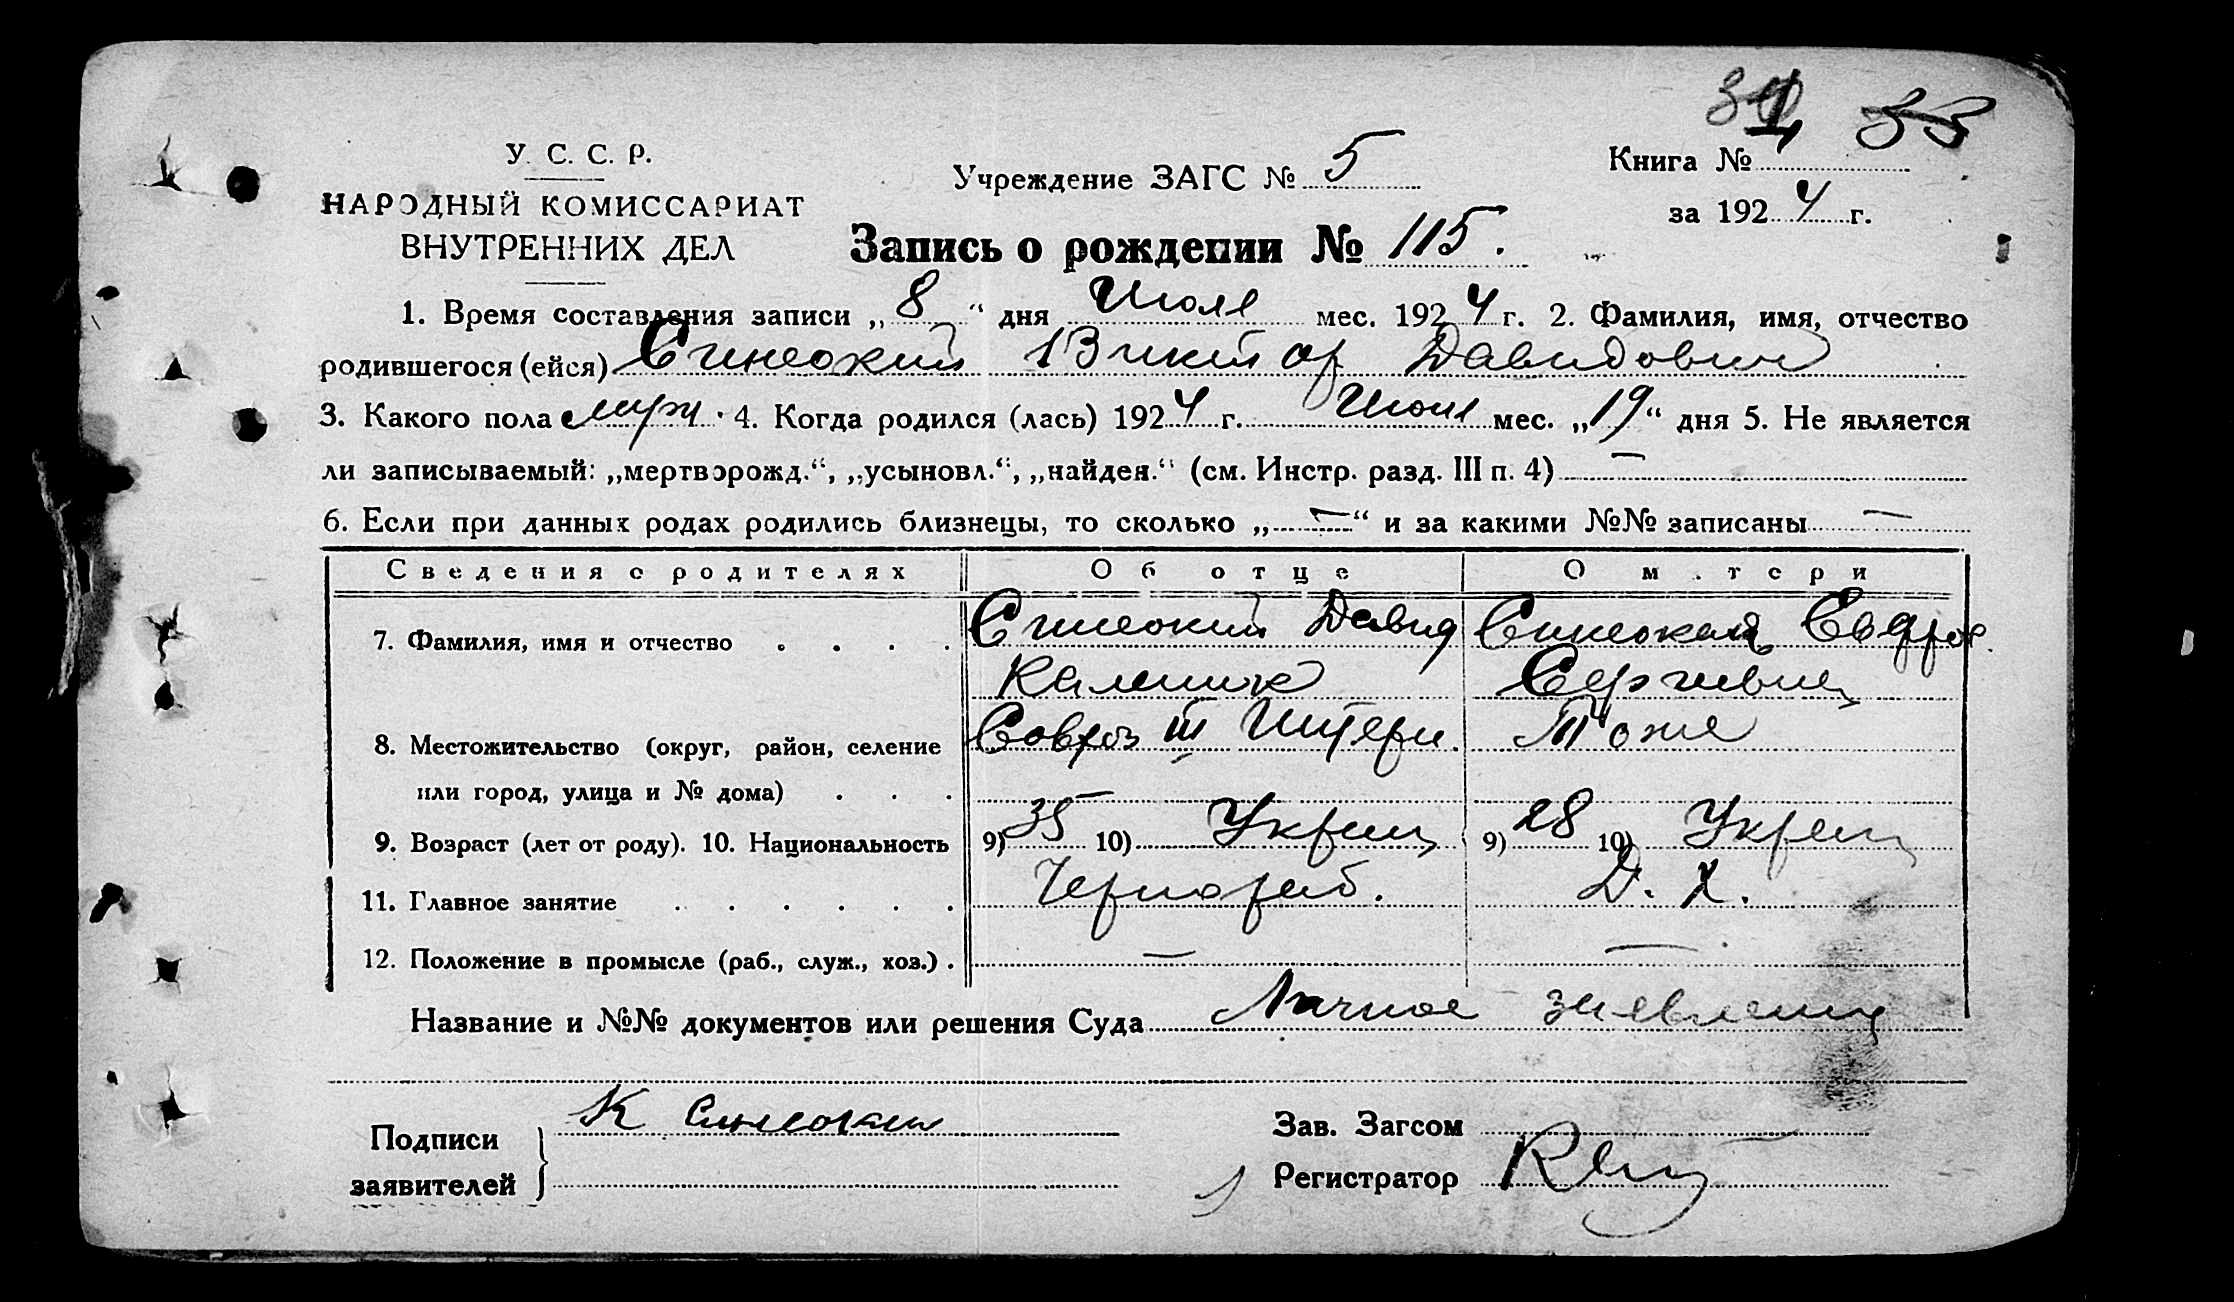 33
У. С. С. Р.
НАРОДНЫЙ КОМИССАРИАТ
ВНУТРЕННИХ ДЕЛ
Учреждение ЗАГС № 5
Книга №
за 1924 г.
Запись о рождении № 115.
1. Время составления записи „8“ дня Июля мес. 1924 г. 2. Фамилия, имя, отчество
родившегося (ейся) Синеокий Виктор Давидович
3. Какого пола муж. 4. Когда родился (лась) 1924 г. Июня мес. „19“ дня 5. Не является
ли записываемый: „мертворожд.“, „усыновл.“, „найден.“ (см. Инстр. разд. III п. 4) —
6. Если при данных родах родились близнецы, то сколько „—“ и за какими №№ записаны —
Сведения о родителях Об отце О матери
7. Фамилия, имя и отчество . . . . Синеокий Давид Синеокая Евфрос
Калиник
8. Местожительство (округ, район, селение Совхоз Тоже
или город, улица и № дома) . . .
9. Возраст (лет от роду). 10. Национальность 9) 35 10) Украин 9) 28 10) Украин
11. Главное занятие . . . . . . Чернораб. Д. Х.
12. Положение в промысле (раб., служ., хоз.) . — —
Название и №№ документов или решения Суда Личное заявление
Подписи заявителей К Синеокий
Зав. Загсом
Регистратор